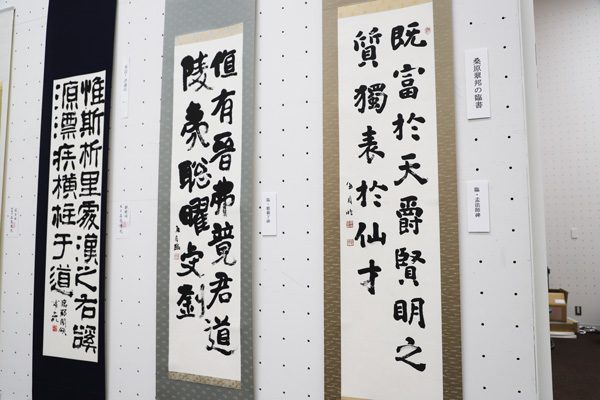 桑原翠邦の臨書
臨・孟法師碑
既富於天爵賢明之
質獨表於仙才
值有晉弗競君道
陵夷聡曜虔劉
惟斯析里處漢之右谿
源漂疾横柱于道